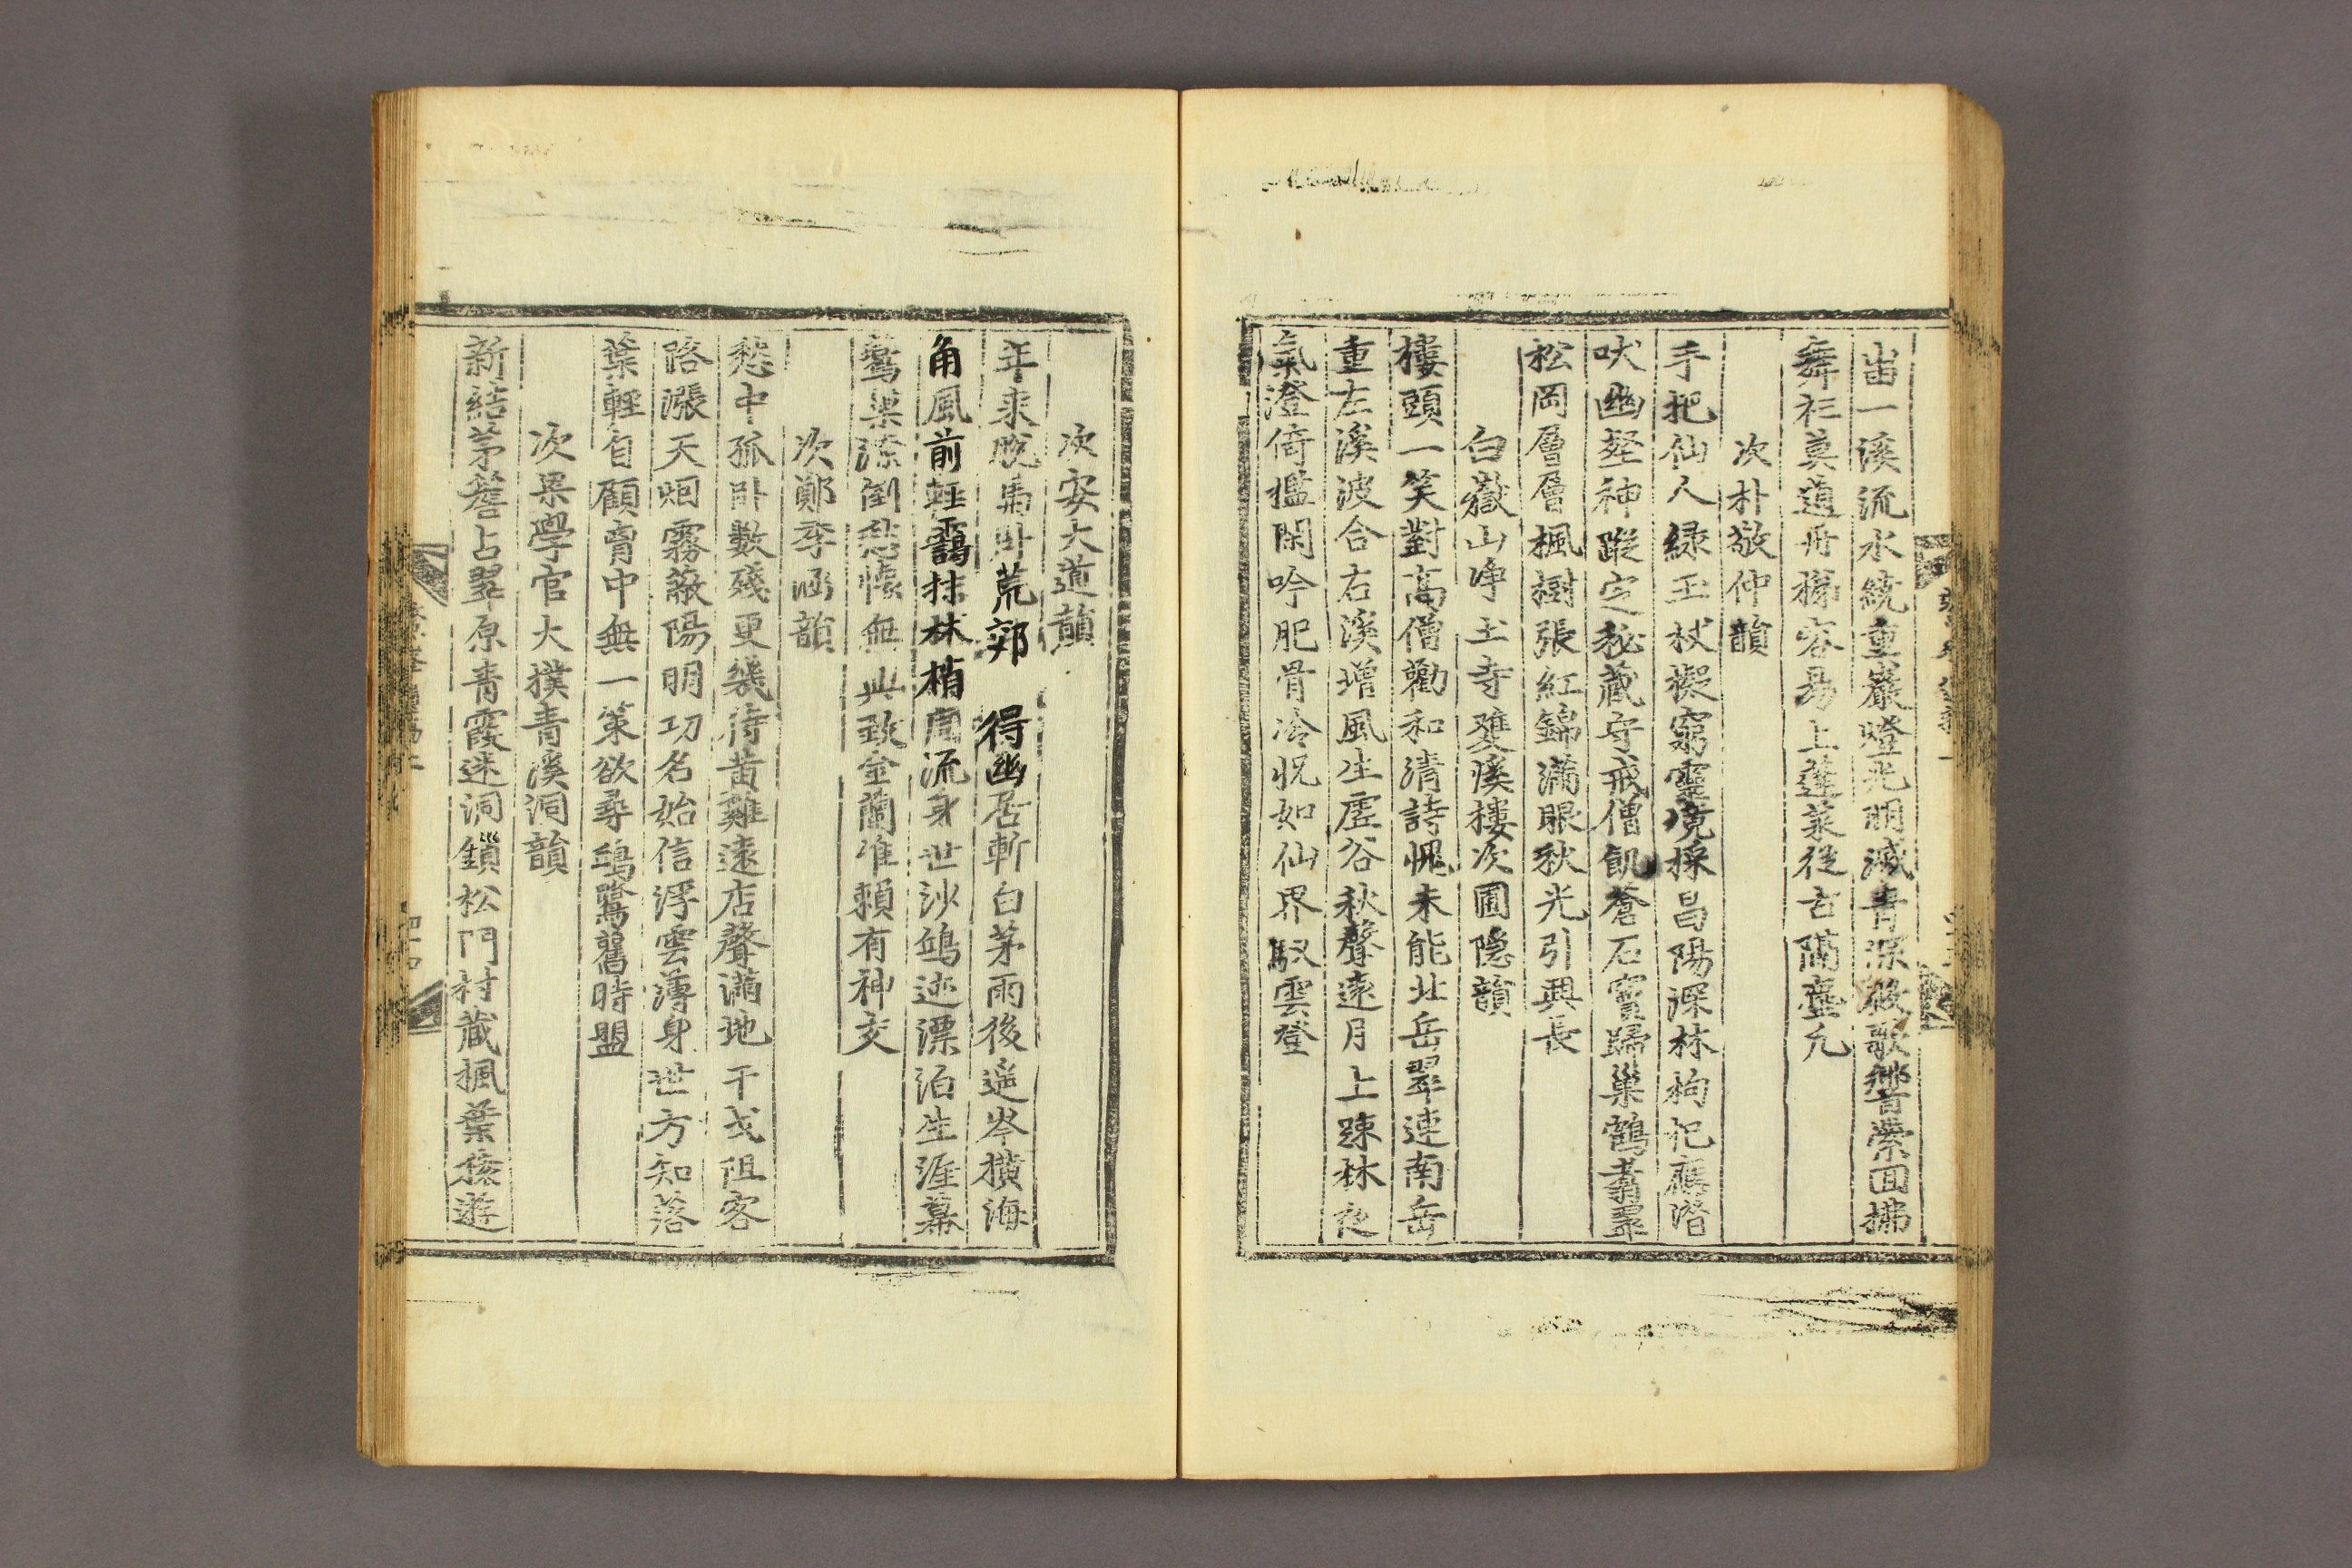 出一溪流水繞重巖燈光明滅青深殿歌響縈回拂
舞衫莫道丹梯容易上蓬萊從古隔塵凡
次朴敬仲韻
手把仙人綠玉杖擬窮靈境採昌陽深林枸杞應潛
吠幽壑神蹤定秘藏守戒僧飢蒼石竇歸巢鶴翥翠
松岡層層楓樹張紅錦滿眼秋光引興長
白嶽山淨土寺雙溪樓次圃隱韻
樓頭一笑對高僧勸和清詩愧未能北岳翠連南岳
重左溪波合右溪增風生虛谷秋聲遠月上疎林夜
氣澄倚檻閑吟肥骨冷怳如仙界馭雲登
次安大道韻
年來脫舃卧荒郊 得幽居斬白茅雨後遥岑橫海
角風前輕靄抹林梢周流身世沙鷗迹漂泊生涯幕
鷰巢潦倒愁懷無興致金蘭准賴有神交
次鄭季涵韻
愁中孤卧數殘更幾待黃雞遠店聲滿地干戈徂客
路漲天烟霧蔽陽明功名始信浮雲薄身世方知落
葉輕自顧胷中無一策欲尋鷗鷺舊時盟
次梁學官大撲青溪洞韻
新結茅簷占翠原青霞迷洞鎖松門村藏楓葉猿遊